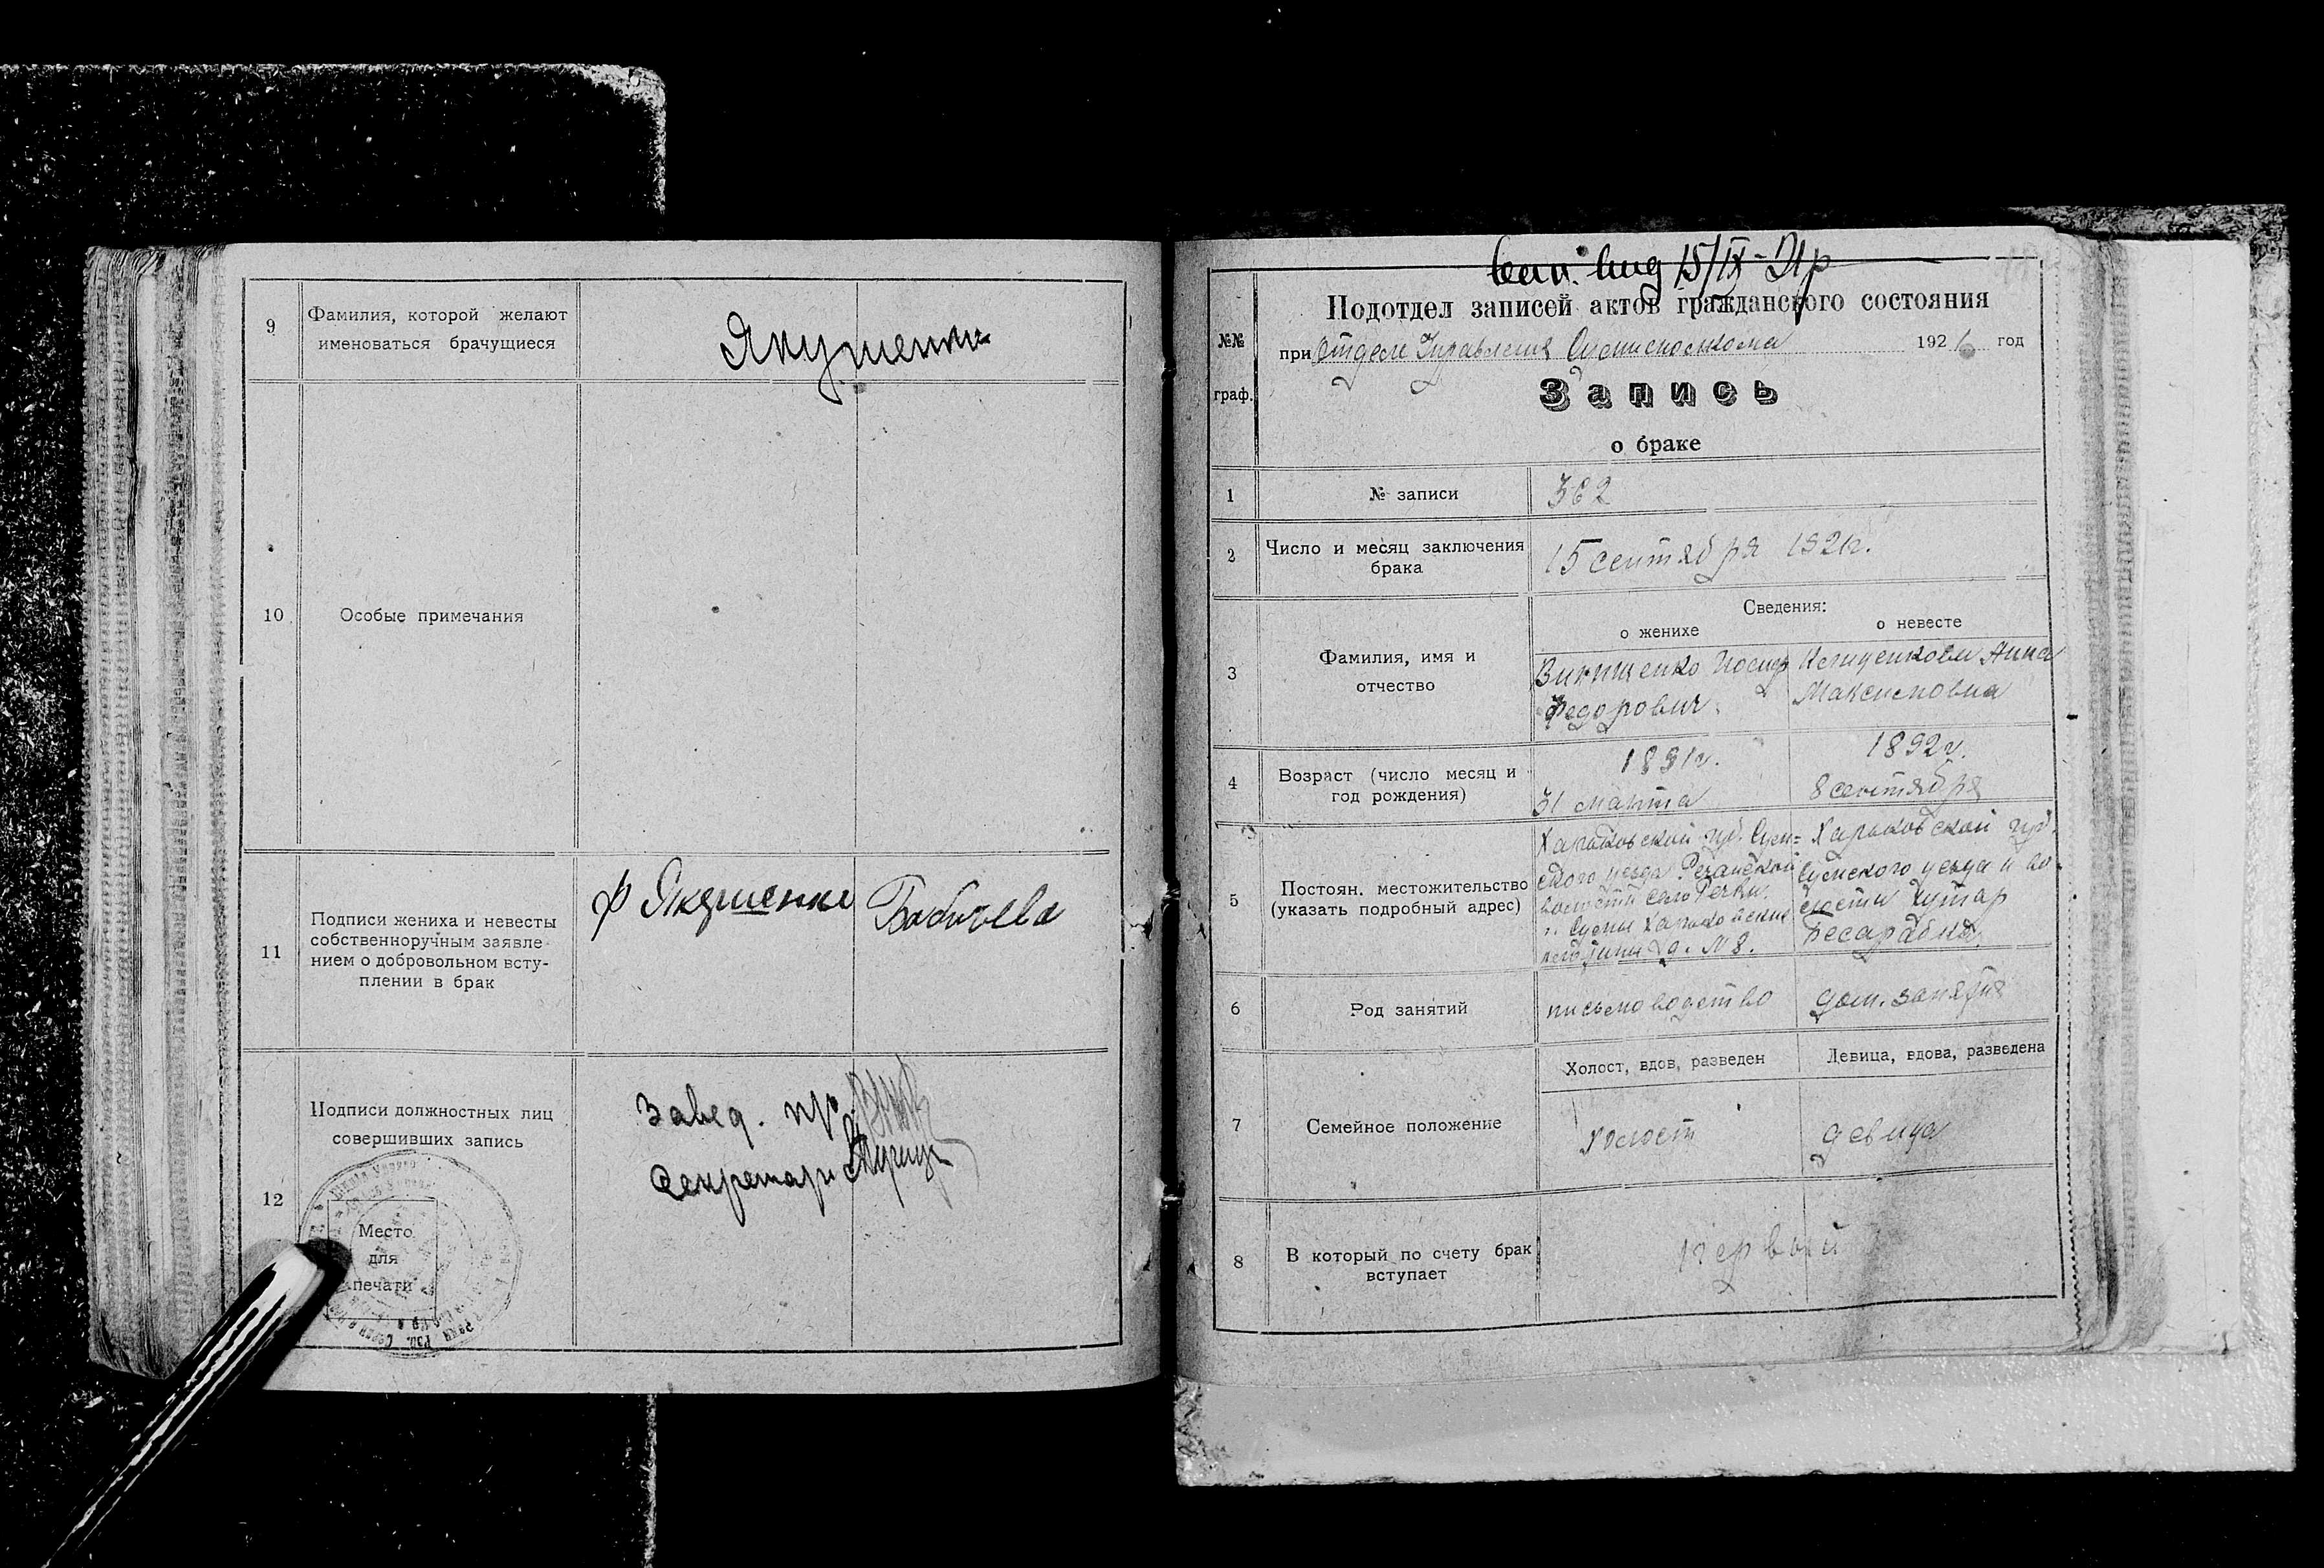 9
Фамилия, которой желают
именоваться брачущиеся
Якушенки
10
Особые примечания
11
Подписи жениха и невесты
собственноручным заявле-
нием о добровольном всту-
плении в брак
Ф Якушенко
Бабичева
12
Подписи должностных лиц
совершивших запись
Завед.
Секретарь
Место
для
печати
15/IX
№№
граф.
Подотдел записей актов гражданского состояния
при Отделе Управления 1921 год
Запись
о браке
1
№ записи
362
2
Число и месяц заключения
брака
15 сентября 1921г.
3
Фамилия, имя и
отчество
Сведения:
о женихе
о невесте
Иосиф
Федорович
Анна
Максимовна
4
Возраст (число месяц и
год рождения)
1891г.
31 марта
1892г.
8 сентября
5
Постоян. местожительство
(указать подробный адрес)
Харьковской губ. Сум=
ского уезда Речанской
волости село Речки.
г. Сумы Харьковская
д. № 8.
Харьковской губ.
Сумского уезда и во-
лости хутор
Бесарабка
6
Род занятий
письмоводство
дом. занятия
7
Семейное положение
Холост, вдов, разведен
Девица, вдова, разведена
холост
девица
8
В который по счету брак
вступает
первый